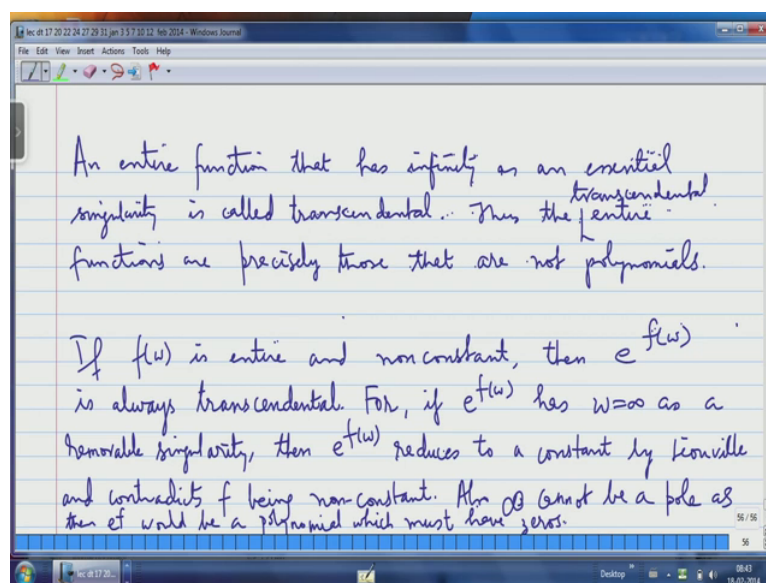 lec dt 17 20 22 24 27 29 31 jan 3 5 7 10 12 feb 2014 - Windows Journal
File Edit View Insert Actions Tools Help
An entire function that has infinity as an essential
singularity is called transcendental. Thus the transcendental entire
functions are precisely those that are not polynomials.
If f(w) is entire and nonconstant, then e^f(w)
is always transcendental. For, if e^f(w) has w=∞ as a
removable singularity, then e^f(w) reduces to a constant by Liouville
and contradicts f being non-constant. Also ∞ cannot be a pole as
then e^f would be a polynomial which must have zeros.
56 / 56
56
lec dt 17 20...
Desktop
08:43
18-02-2014